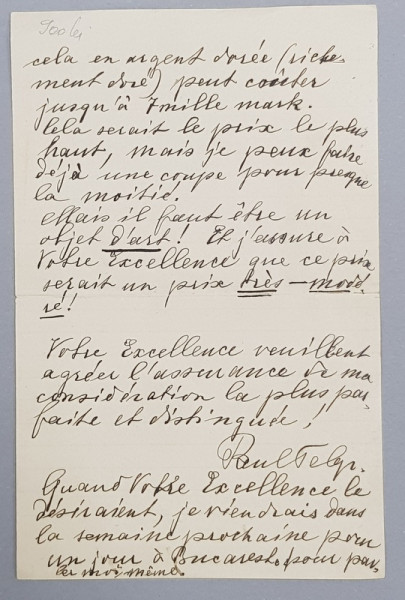 500 lei
cela en argent dorée (riche-
ment doré) peut coûter
jusqu'à 7 mille mark.
Cela serait le prix le plus
haut, mais je peux faire
déjà une coupe pour presque
la moitié.
Mais il faut être un
objet d'art! Et j'assure à
Votre Excellence que ce prix
serait un prix très-modé-
ré!
Votre Excellence veuillent
agréer l'assurance de ma
considération la plus par-
faite et distinguée!
Paul Telge.
Quand Votre Excellence le
désiraient, je viendrais dans
la semaine prochaine pour
un jour à Bucarest, pour par-
ler moi-même.